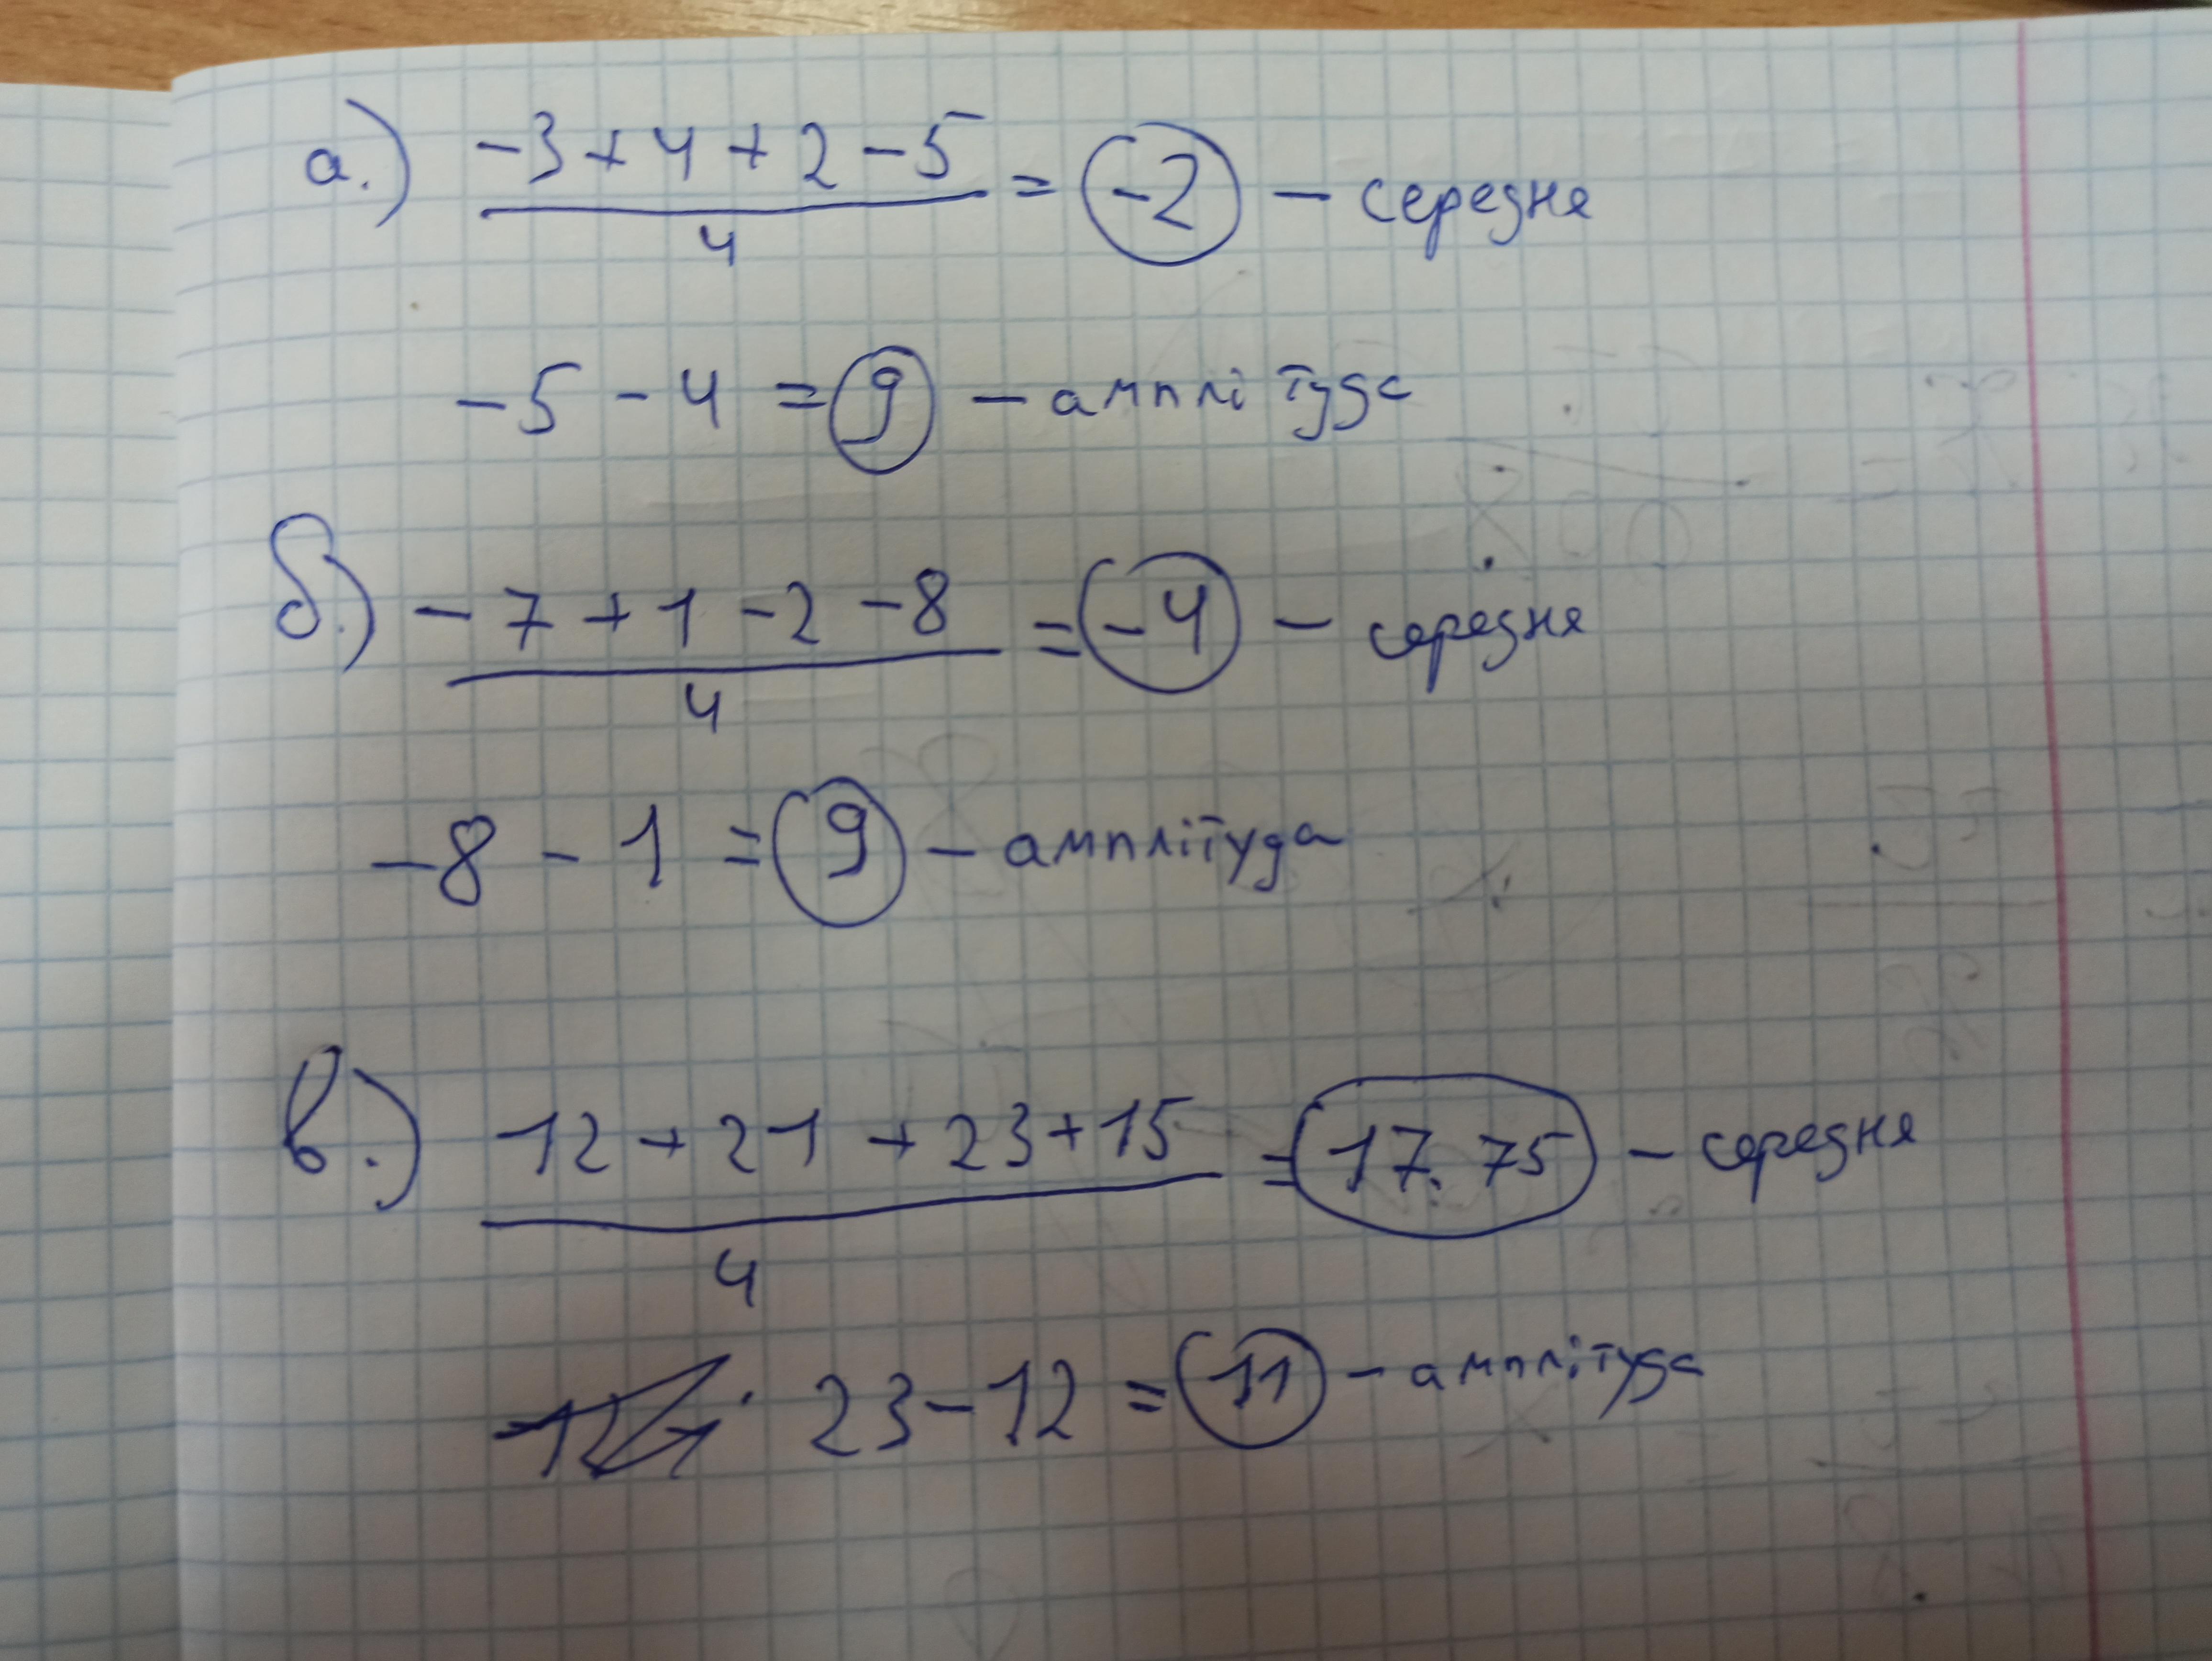 а.) -3+4+2-5 = -2 - середня
4
-5-4 = 9 - амплітуда
б.) -7+1-2-8 = -4 - середня
4
-8-1 = 9 - амплітуда
в.) 12+21+23+15 = 17.75 - середня
4
23-12 = 11 - амплітуда